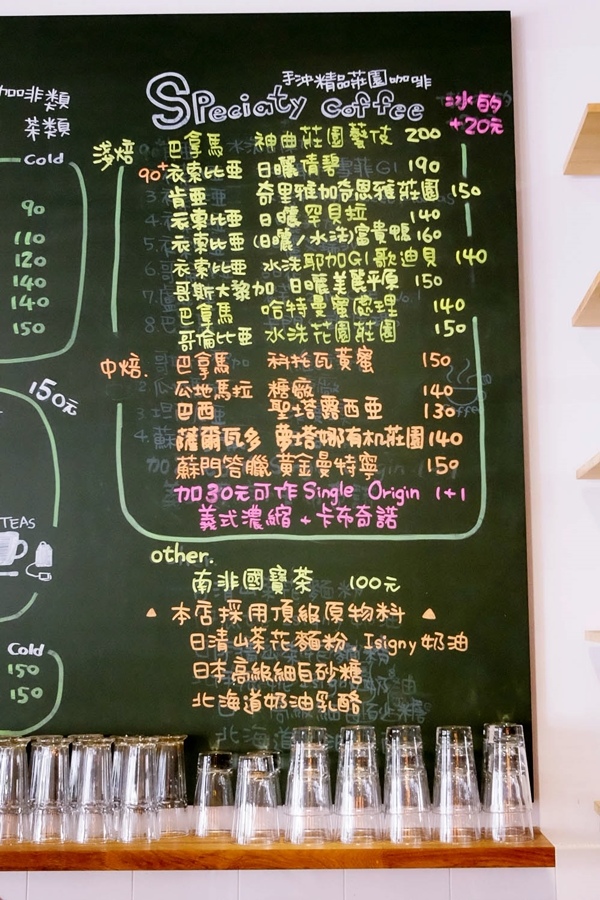 咖啡類
茶類
Cold
90
110
120
140
140
150
150元
TEAS
Cold
150
150
手沖精品莊園咖啡
Speciaty coffee
冰的
+20元
淺焙
巴拿馬 神曲莊園藝伎 200
90+衣索比亞 日曬倩碧 190
肯亞 奇里雅加奇恩雅莊園 150
衣索比亞 日曬罕貝拉 140
衣索比亞 (日曬/水洗)富貴鴨 160
衣索比亞 水洗耶加G1歌迪貝 140
哥斯大黎加 日曬美麗平原 150
巴拿馬 哈特曼蜜處理 140
哥倫比亞 水洗花園莊園 150
中焙.
巴拿馬 科托瓦黃蜜 150
瓜地馬拉 糖廠 140
巴西 聖塔露西亞 130
薩爾瓦多 夢塔娜有机莊園 140
蘇門答臘 黃金曼特寧 150
加30元可作Single Origin 1+1
義式濃縮+卡布奇諾
other.
南非國寶茶 100元
▲ 本店採用頂級原物料 ▲
日清山茶花麵粉.Isigny奶油
日本高級細白砂糖
北海道奶油乳酪